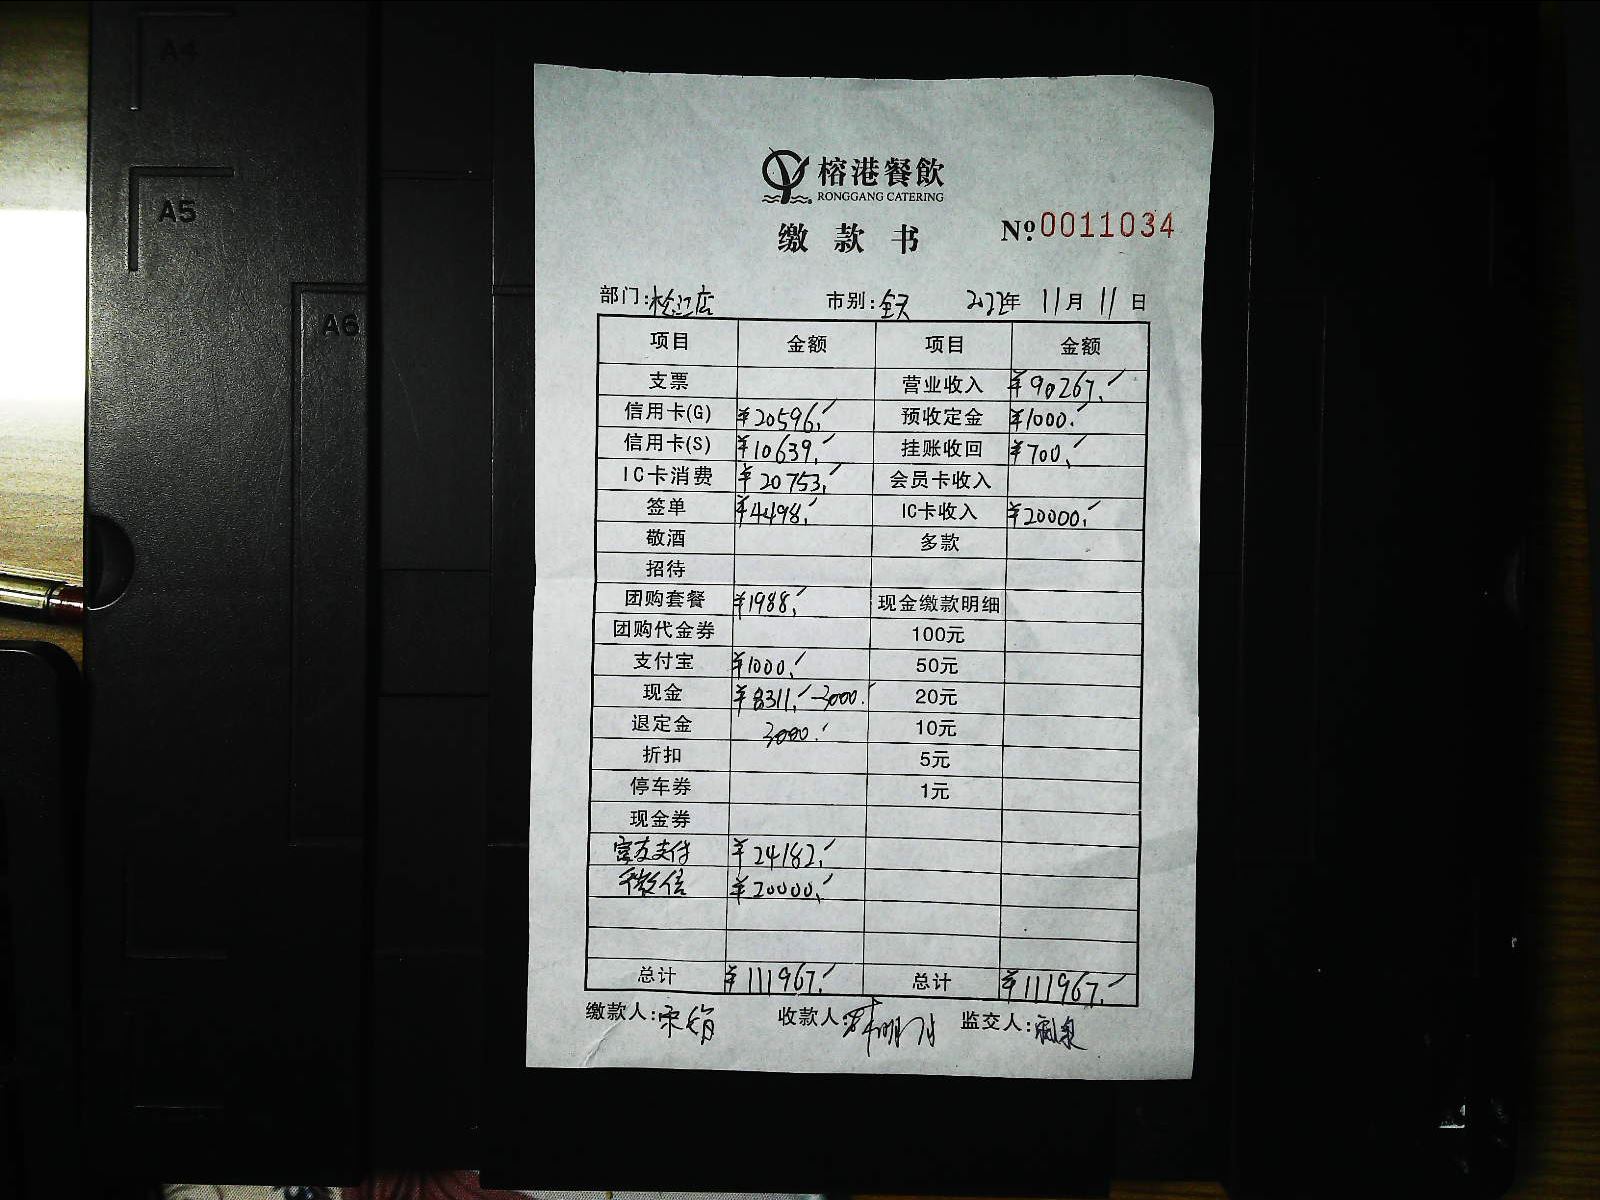 A4
A5
A6
榕港餐飲
RONGGANG CATERING
缴款书
Nº 0011034
部门:松江店 市别:全天 2022年 11月 11日
项目 金额 项目 金额
支票 营业收入 ¥90267.
信用卡(G) ¥20596. 预收定金 ¥1000.
信用卡(S) ¥10639. 挂账收回 ¥700.
IC卡消费 ¥20753. 会员卡收入
签单 ¥4498. IC卡收入 ¥20000.
敬酒 多款
招待
团购套餐 ¥1988. 现金缴款明细
团购代金券 100元
支付宝 ¥1000. 50元
现金 ¥8311.-3000. 20元
退定金 3000. 10元
折扣 5元
停车券 1元
现金券
富友支付 ¥24182.
微信 ¥20000.
总计 ¥111967. 总计 ¥111967.
缴款人: 收款人: 监交人: